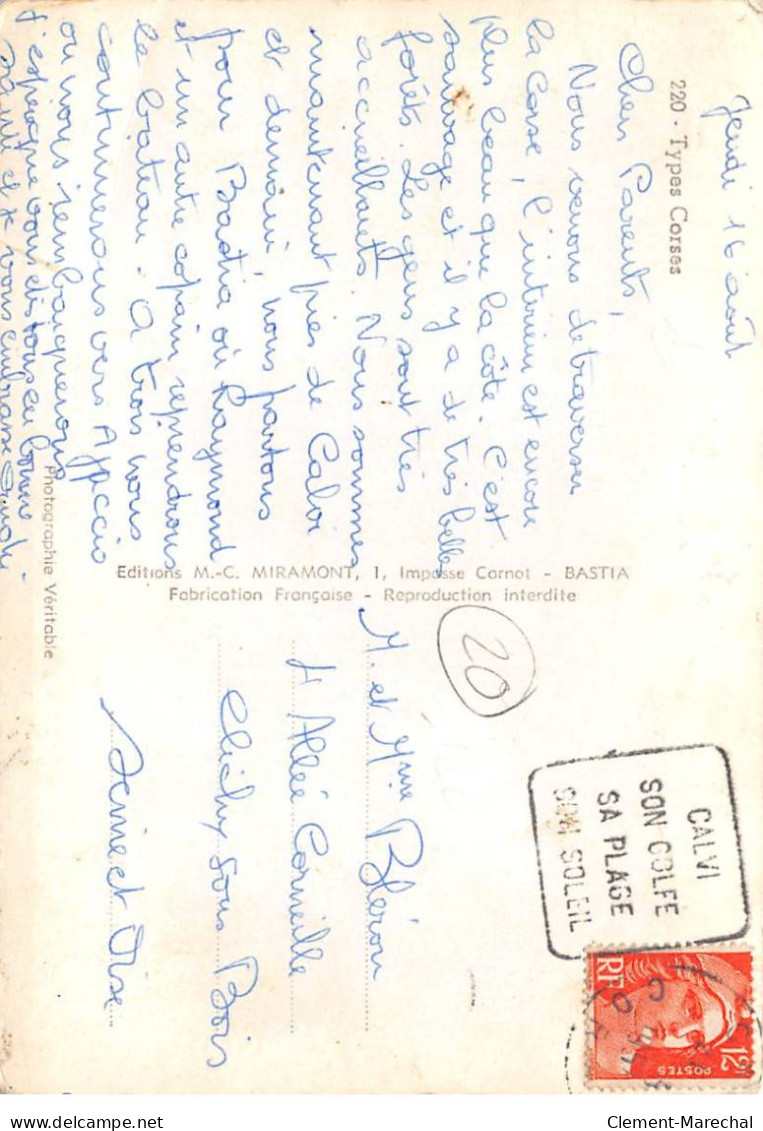 Jeudi 16 août
220 - Types Corses
Chers Parents,
Nous venons de traverser
la Corse, l'intérieur est encore
plus beau que la côte. C'est
sauvage et il y a de très belles
forêts. Les gens sont très
accueillants. Nous sommes
maintenant près de Calvi
et demain, nous partons
pour Bastia où Raymond
et un autre copain reprendrons
le bateau. A trois nous
continuerons vers Ajaccio
ou nous rembarquerons
J'espère que vous êtes tous en bonne
santé et je vous embrasse
Photographie Véritable
Editions M.-C. MIRAMONT, 1, Impasse Carnot - BASTIA
Fabrication Française - Reproduction interdite
20
M. et Mme Blérion
4 Allée Corneille
Clichy sous Bois
Seine et Oise
CALVI
SON GOLFE
SA PLAGE
SON SOLEIL
RF
12F
POSTES
delcampe.net
Clement-Marechal